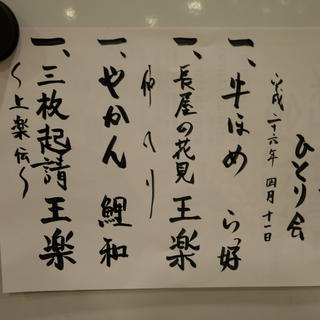 ひとり会
平成二十六年 四月十一日
一、牛ほめ らっ好
一、長屋の花見 王楽
仲入り
一、やかん 鯉和
一、三枚起請 王楽
〜上楽伝〜